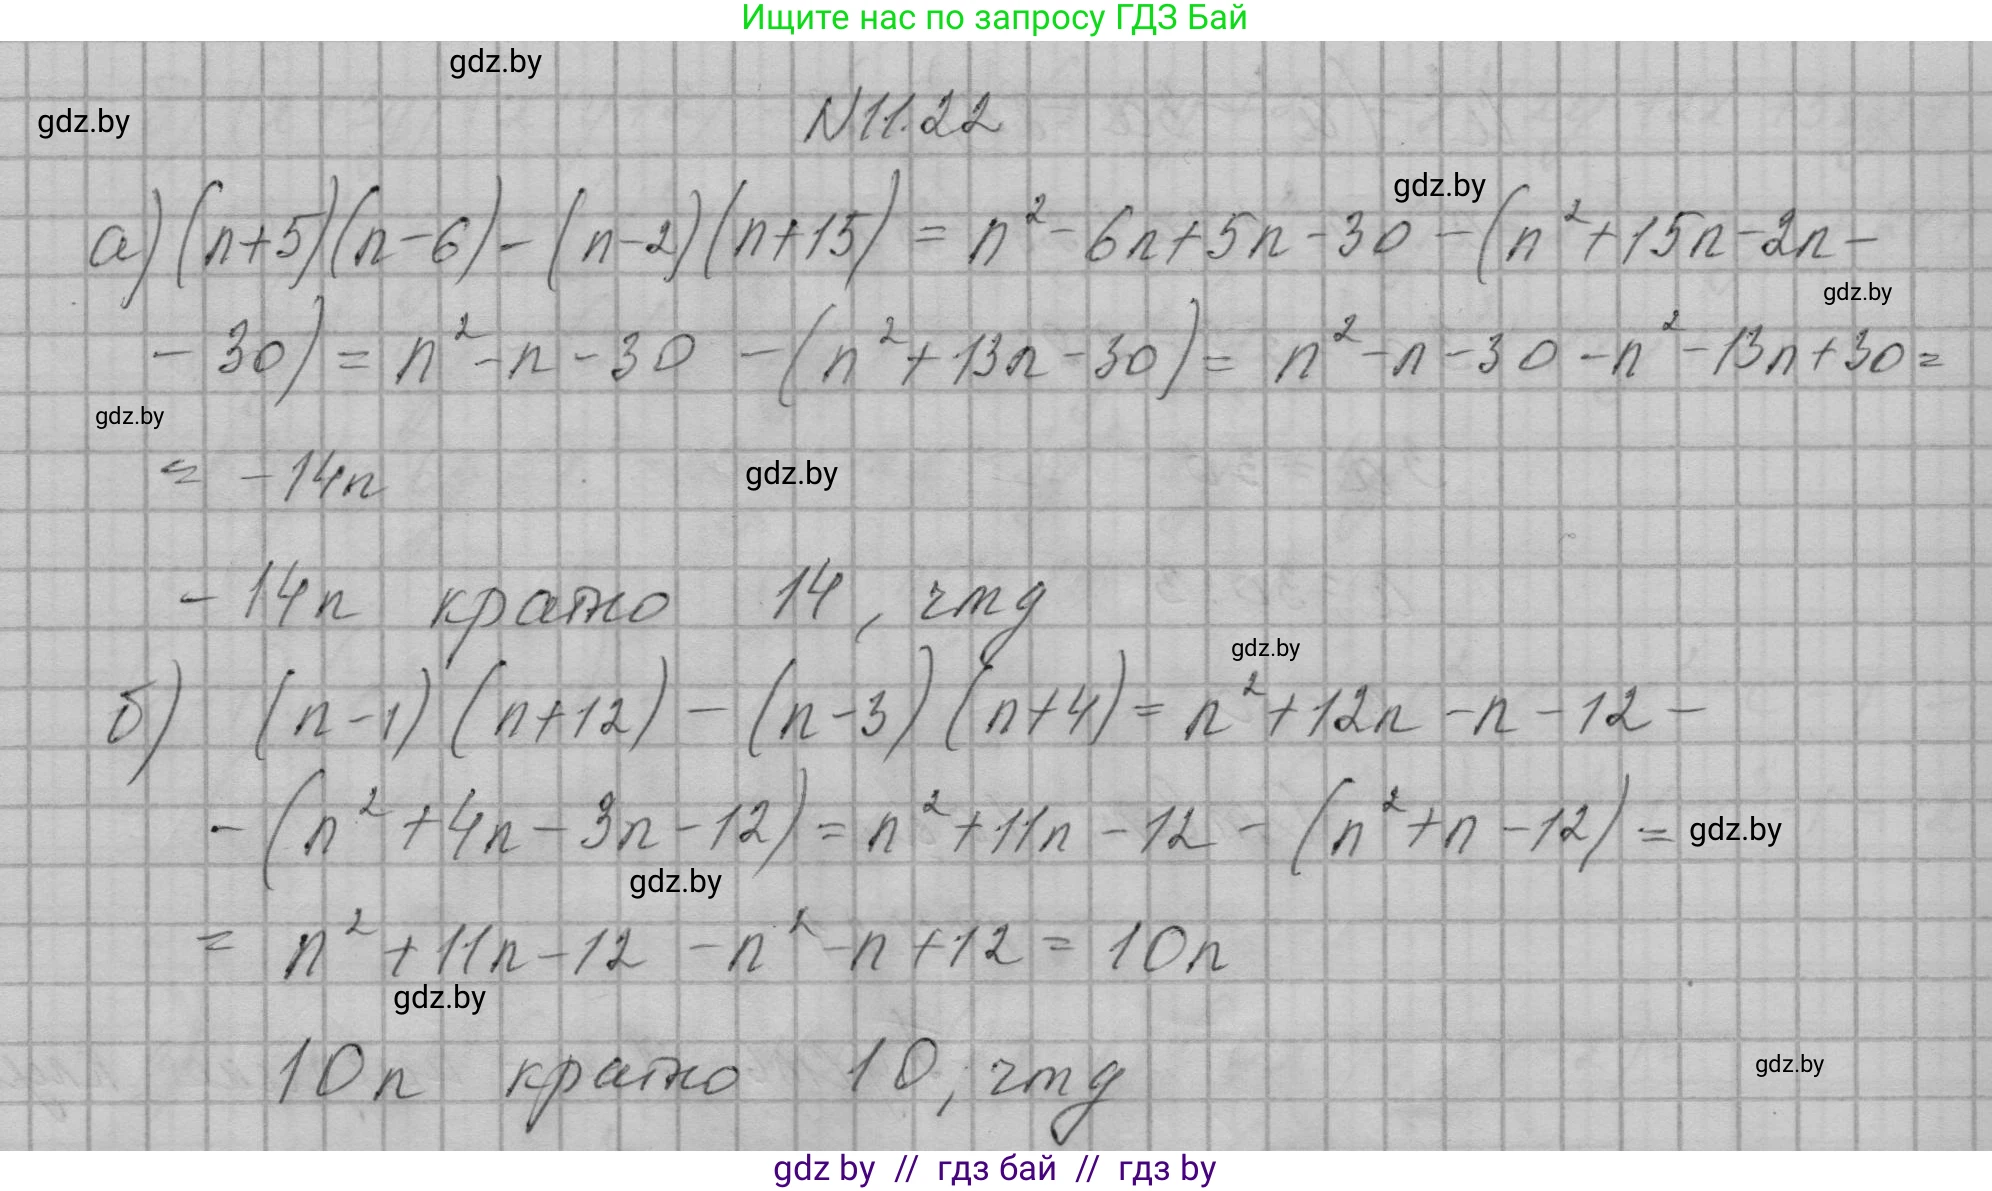 Ищите нас по запросу ГДЗ Бай
gdz.by
gdz.by
N 11.22
gdz.by
а) (n+5)(n-6)-(n-2)(n+15) = n²-6n+5n-30-(n²+15n-2n-
gdz.by
-30) = n²-n-30-(n²+13n-30) = n²-n-30-n²-13n+30=
gdz.by
= -14n
gdz.by
-14n кратно 14, чтд
gdz.by
б) (n-1)(n+12)-(n-3)(n+4) = n²+12n-n-12-
-(n²+4n-3n-12) = n²+11n-12-(n²+n-12) =
gdz.by
gdz.by
= n²+11n-12-n²-n+12 = 10n
gdz.by
10n кратно 10, чтд
gdz.by
gdz by // гдз бай // гдз by